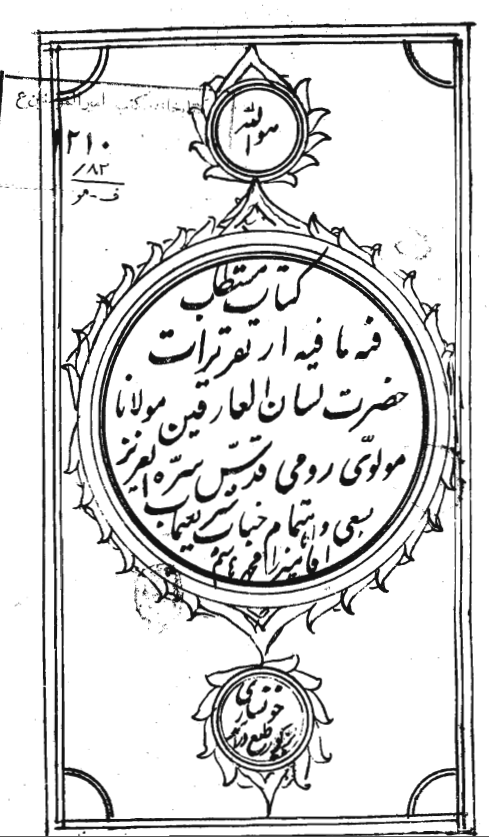 هو الله
۲۱۰
۸۲/
ف-مو
کتاب مستطاب
فیه ما فیه از تقریرات
حضرت لسان العارفین مولانا
مولوّی رومی قدّس سرّه العزیز
بسعی و اهتمام جناب شریعتمآب
آقا میرزا محمد هاشم
خونساری
طبع درآمد